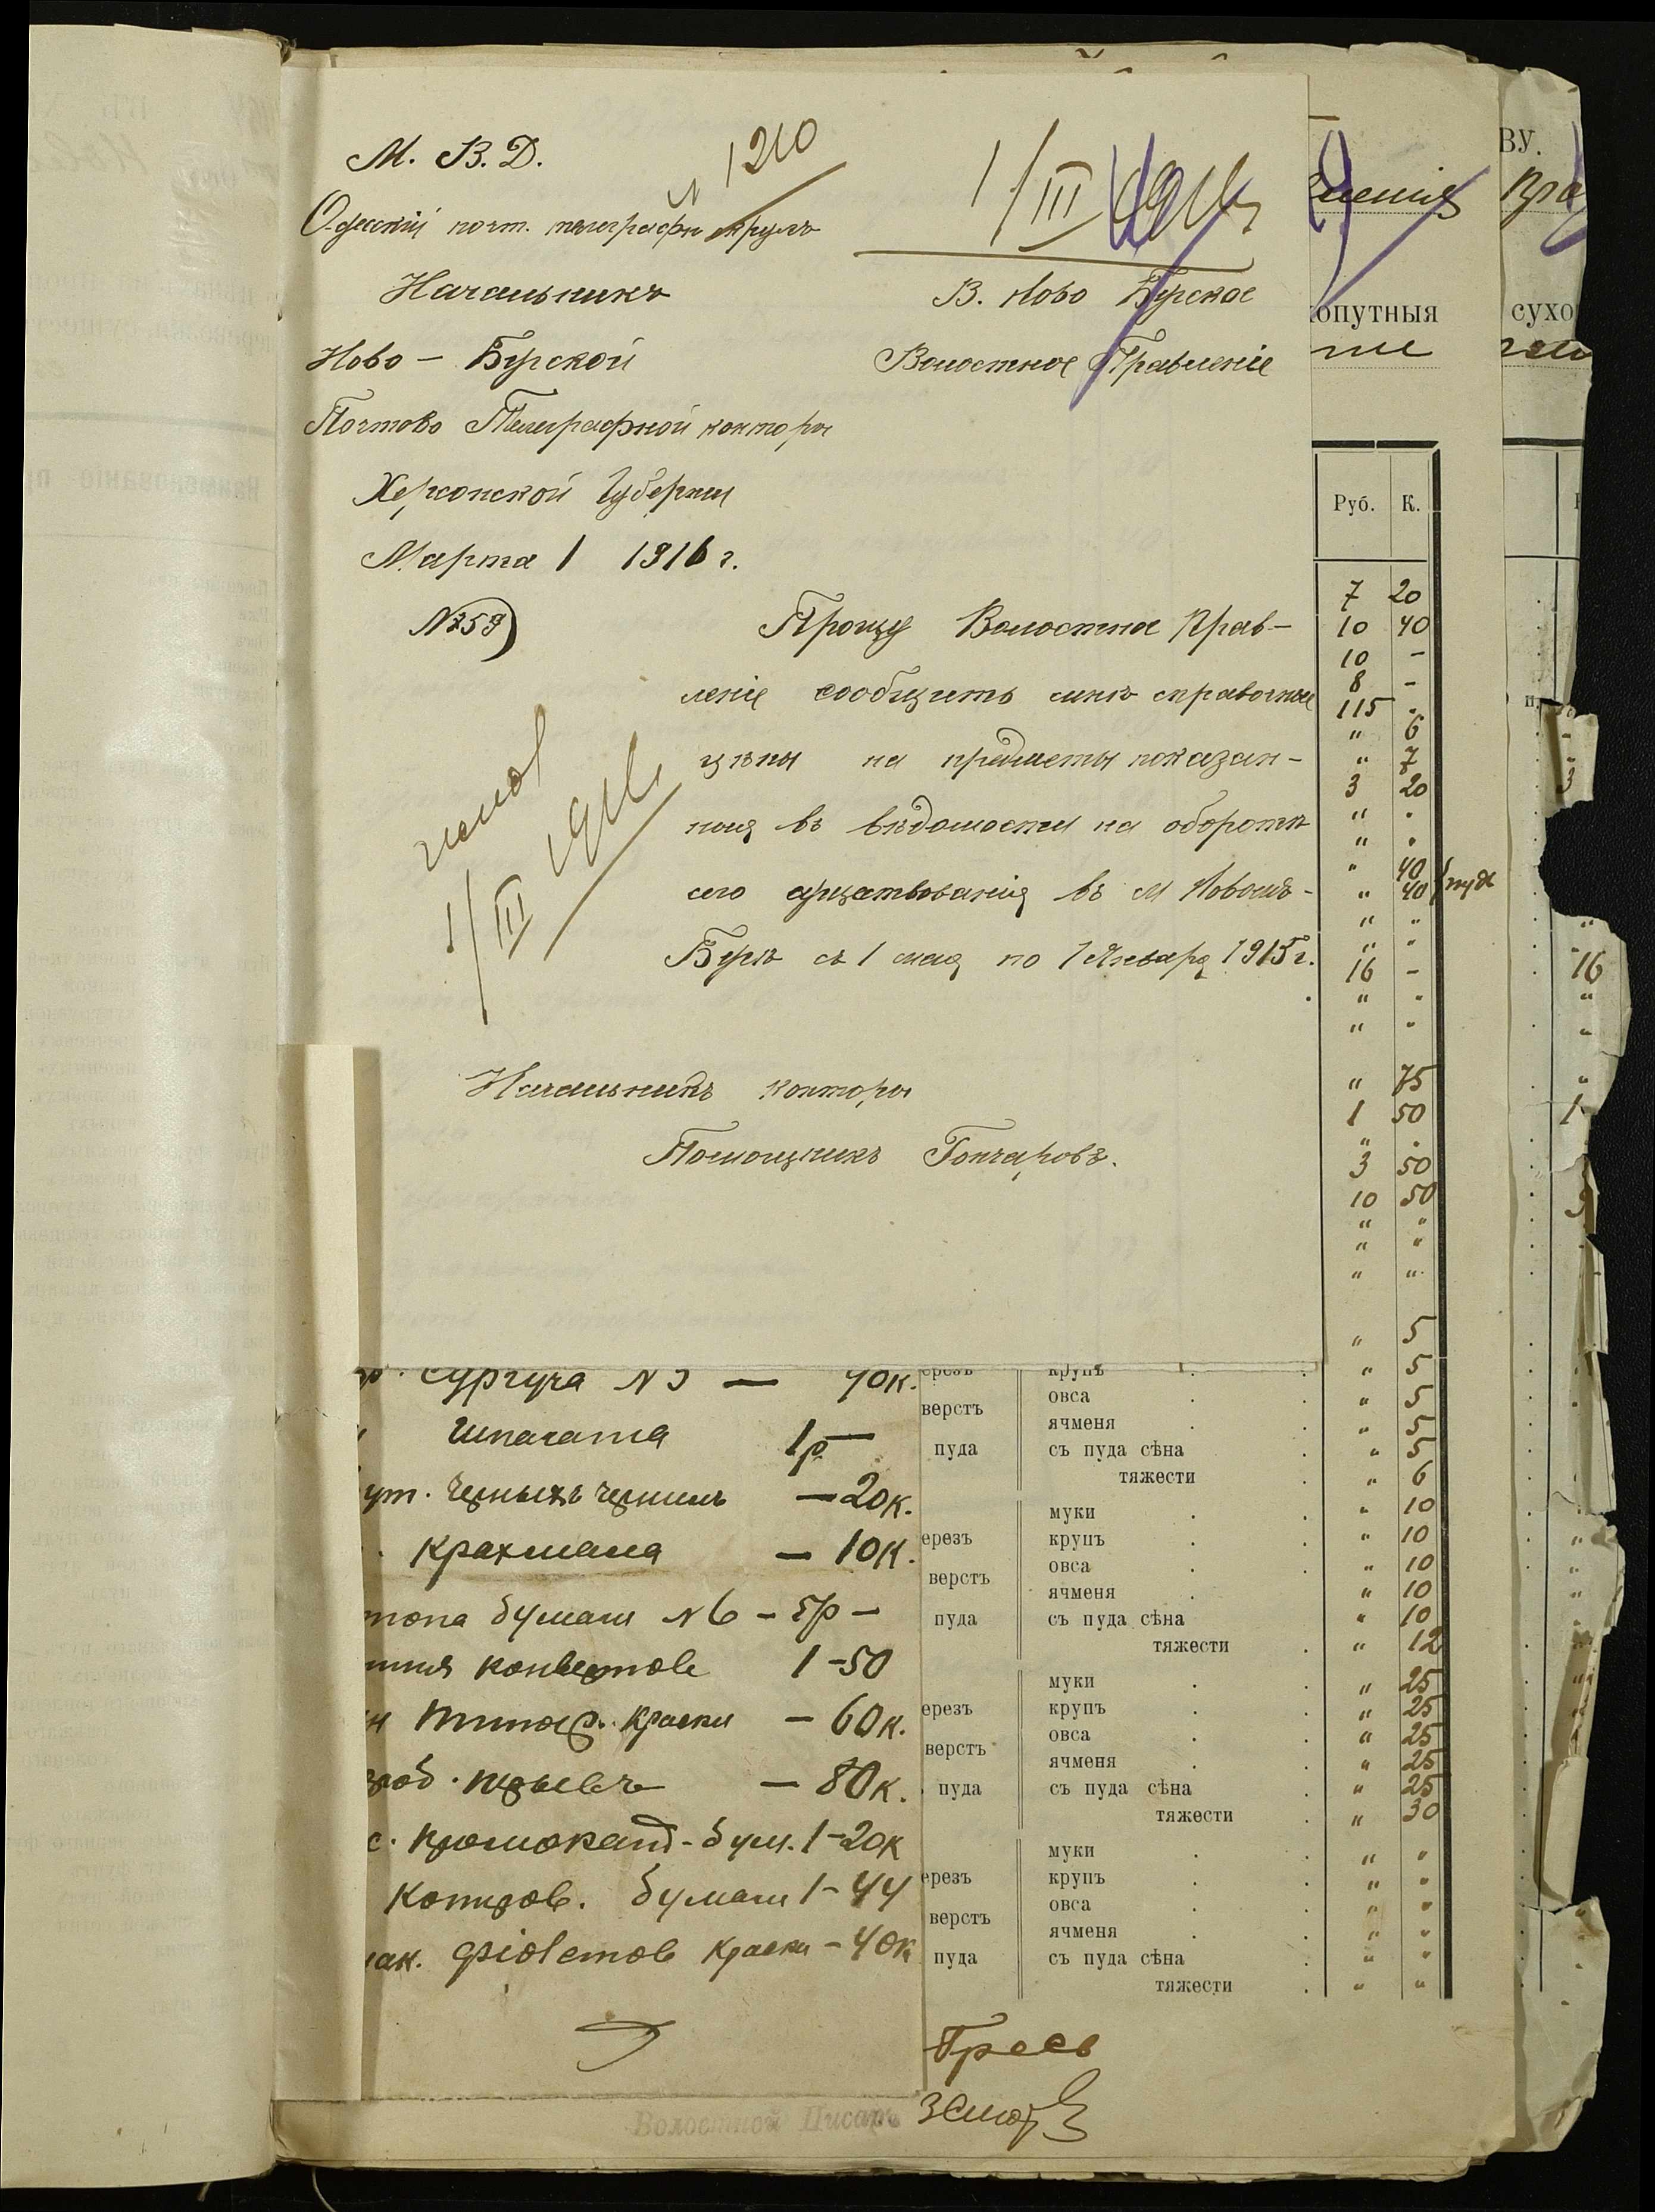 М. В. Д.
№ 1210
Одесскій почт. телеграфн округъ
Начальникъ
Ново – Бугской
Почтово Телеграфной конторы
Херсонской Губерніи
Марта 1 1916 г.
№ 259
1/III 1916
В. Ново Бугское
Волостное Правленіе
Прошу Волостное Прав-
леніе сообщить мнѣ справочныя
цѣны на предметы показан-
ныя въ вѣдомости на оборотѣ
сего существованія въ м Новомъ-
Бугѣ съ 1 мая по 1 Января 1915 г.
1/III 1916
Начальникъ конторы
Помощникъ Гончаровъ.
Сургуча № 3 — 40к.
Шпагата 1р —
ут. Черныхъ чернилъ — 20к.
Крахмала — 10к.
топа бумаги № 6 – 5р –
конвертов 1 – 50
краски – 60к.
– 80к.
бум. 1 – 20к
Копиров. бумаги 1 – 44
фіолетов краски – 40к
ВУ.
опутныя
сухо
Руб. К.
7 20
10 40
10 –
8 –
115 .
" 6
" 7
3 20
" .
" .
" 40
" 40 пуд
" "
" "
16 –
" "
" "
" 75
1 50
" .
3 50
10 50
" "
" "
" "
" 5
ерезъ крупъ . . " 5
верстъ овса . . " 5
ячменя . " 5
пуда съ пуда сѣна . " 5
тяжести . " 6
муки . . " 10
ерезъ крупъ . . " 10
верстъ овса . . " 10
ячменя . " 10
пуда съ пуда сѣна . " 10
тяжести . " 12
муки . . " 25
ерезъ крупъ . . " 25
верстъ овса . . " 25
ячменя . . " 25
пуда съ пуда сѣна . " 25
тяжести . " 30
муки . . " "
ерезъ крупъ . . " "
верстъ овса . . " "
ячменя . . " "
пуда съ пуда сѣна . " "
тяжести . " "
16
Волостной Писарь